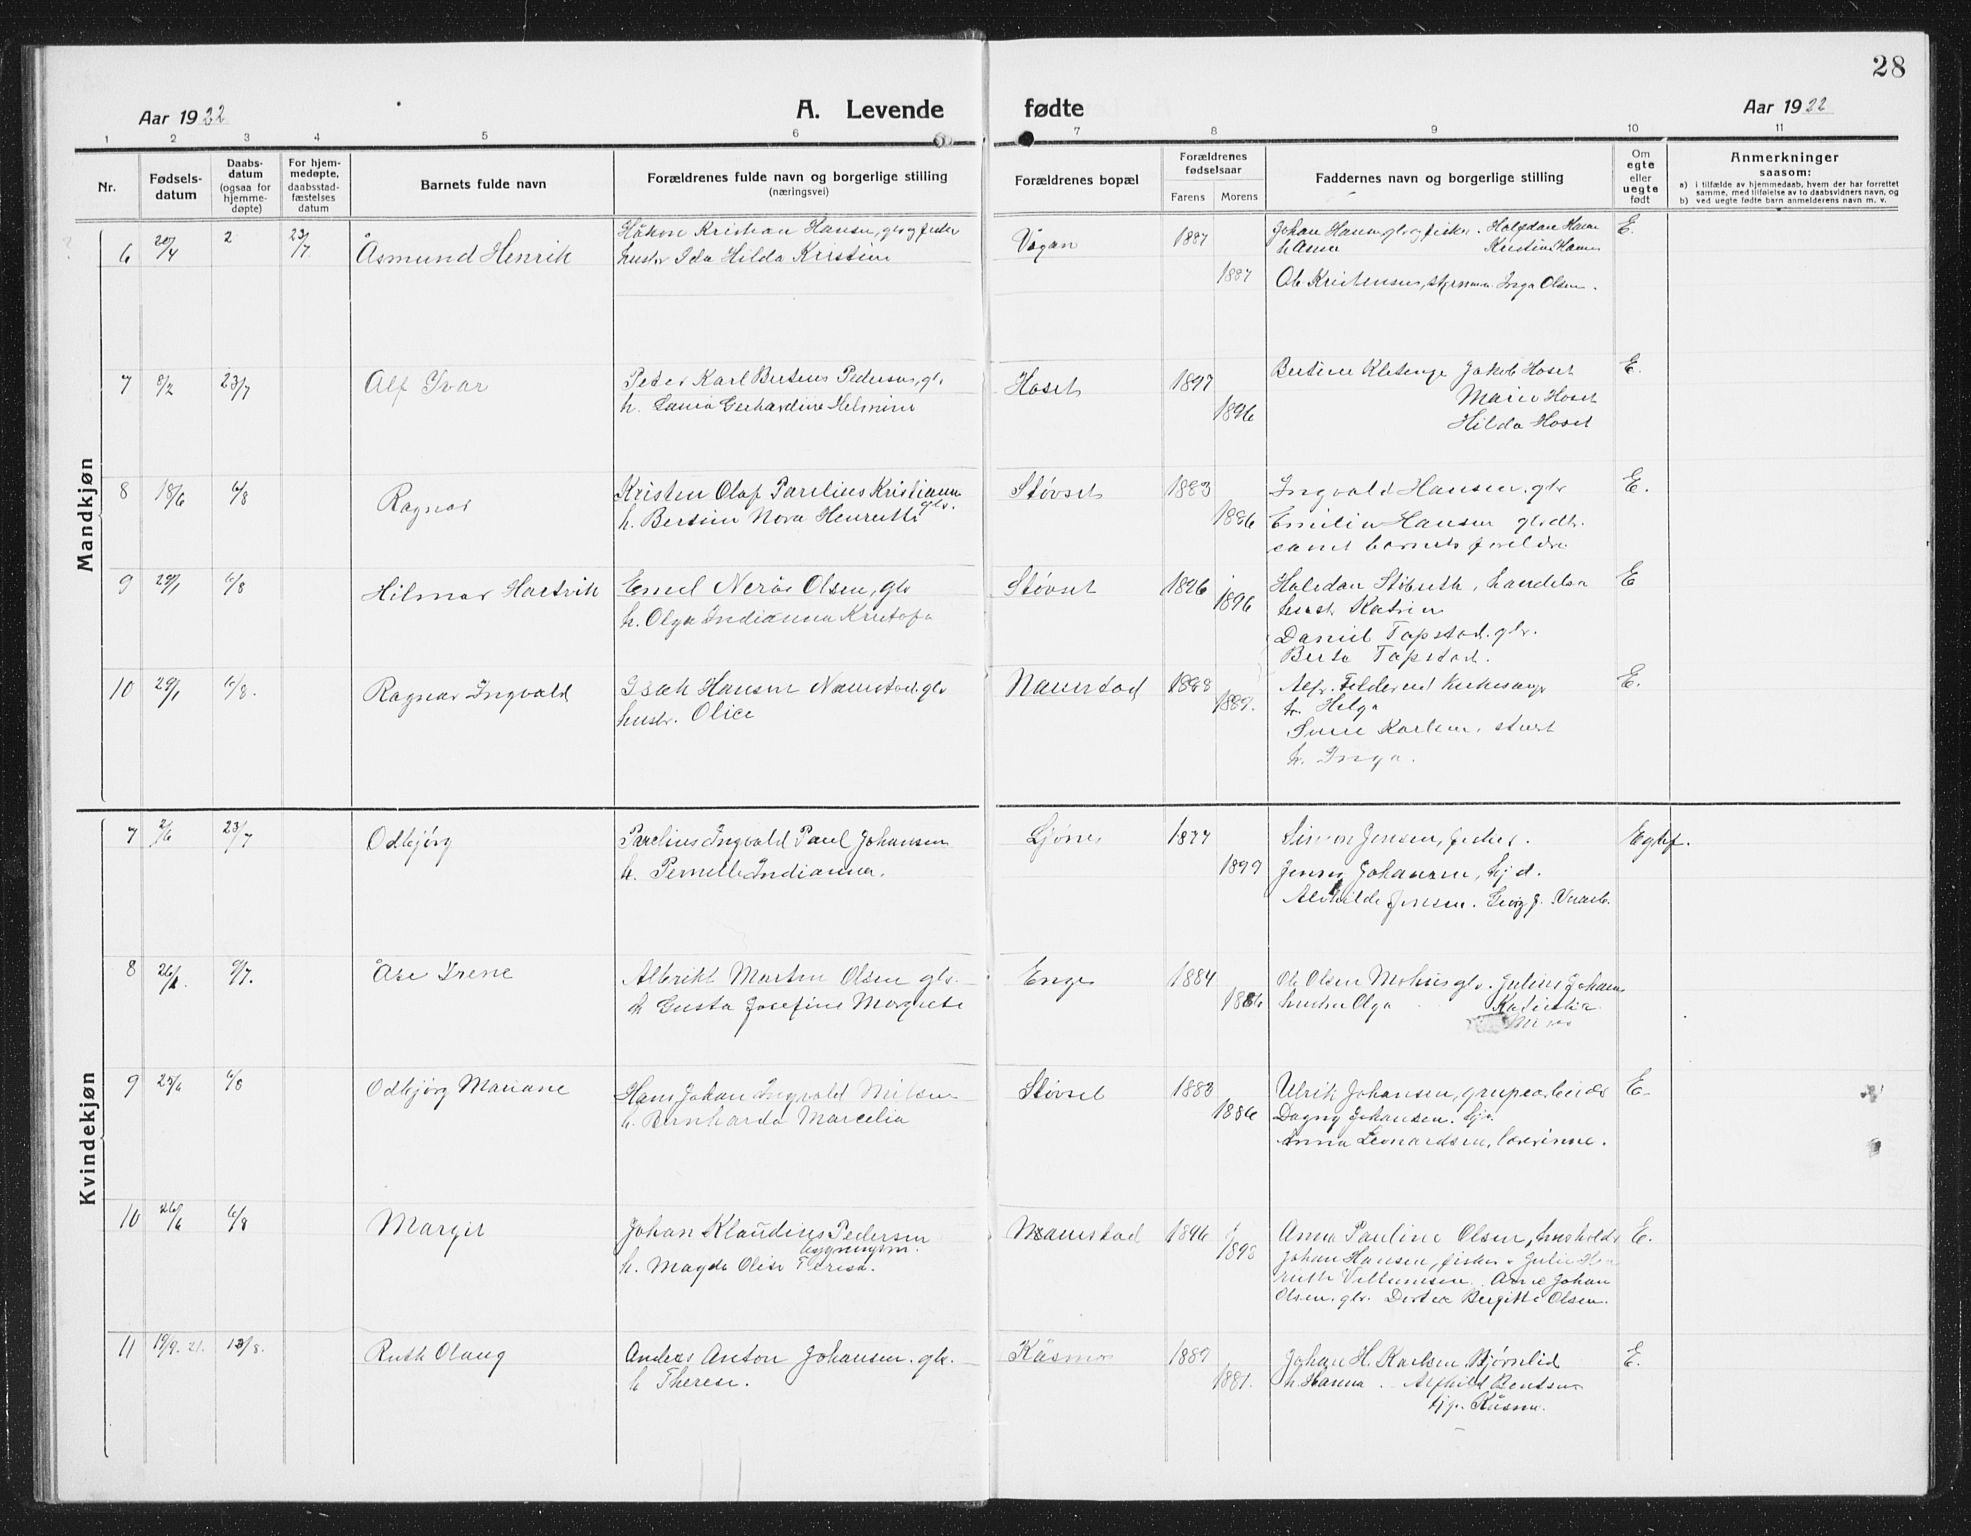 28
Aar 1922
A. Levende fødte
Aar 1922
1 2 3 4 5 6 7 8 9 10 11
Nr.
Fødsels-
datum
Daabs-
datum
(ogsaa for
hjemme-
døpte)
For hjem-
medøpte,
daabsstad-
fæstelses
datum
Barnets fulde navn
Forældrenes fulde navn og borgerlige stilling
(næringsvei)
Forældrenes bopæl
Forældrenes
fødselsaar
Farens Morens
Faddernes navn og borgerlige stilling
Om
egte
eller
uegte
født
Anmerkninger
saasom:
a) i tilfælde av hjemmedaab, hvem der har forrettet
samme, med tilføielse av to daabsvidners navn, og
b) ved uegte fødte barn anmelderens navn m. v.
Mandkjøn
6 20/4 2 23/7 Åsmund Henrik
Håkon Kristian Hansen, gbr og fisker
hustr Ida Hilda Kristine
Vågan 1887 1887
Johan Hansen gbr og fisker. Halvdan Hansen
h Anna Kristine Hansen
Ole Kristensen, Inga Olsen.
E.
7 8/2 23/7 Alf Ivar
Peter Karl Berteus Pedersen, gbr
h. Gerhardine Helmine
Hoset 1897 1896
Bertine Jakob Hoset
Marie Hoset
Hilda Hoset
E.
8 18/6 6/8 Ragnar
Kristen Olaf Parelius Kristiansen
gbr.
h. Bertine Nora Henrette
Støvset 1883 1886
Ingvald Hansen. gbr
Emilie Hansen gbrdt.
samt barnets foreldre
E.
9 29/1 6/8 Hilmar Hartvik
Emil Olsen, gbr
h. Olga Indianna
Støvset 1896 1896
Halvdan Støvseth, handelsm
hustr Katrine
Daniel Tapstad. gbr.
Berta Tapstad.
E
10 29/1 6/8. Ragnar Ingvald
Isak Hansen Naurstad. gbr
hustr. Olise
Naurstad 1888 1889.
Alfr. Kirkesanger
h. Helga
Karlsen,
h. Inga.
E.
Kvindekjøn
7 2/6 23/7 Odbjørg
Parelius Ingvald Paul Johansen
h. Pernelle Indianna.
Ljønes 1877 1899
Simon Jensen, fisker.
Jenny Johansen, tj d.
Alvhilde Jensen. Georg J.
Egtef.
8 26/1. 9/7. Åse Irene
Albrikt Morten Olsen gbr.
h Gusta Josefine Margrete
Enge 1884 1886
Ole Olsen gbr. Julius Johans
hustru Olga
9 25/6 6/8 Odbjørg Mariane
Hans Johan Ingvald Nilsen
h. Bernharda Marcelia
Støvset 1883 1886
Ulrik Johansen, grupearbeider
Dagny Johansen. tj.
Anna Leonardsen, lærerinne.
E.
10 26/6 6/8 Margit
Johan Klaudius Pedersen
bygningsm.
h. Magda Olise Teresa.
Naurstad 1896 1898
Anna Pauline Olsen, husholdr
Johan Hansen, fisker Julie
Ruth Arne Johan
Olsen. gbr. Dortea Bergitte Olsen.
E.
11 19/9. 21. 13/8. Ruth Olaug
Anders Anton Johansen. gbr.
h Therese.
Kåsmo 1889 1881.
Johan H. Karlsen Bjørnlid
h. Hanna. Alfhild Bentsen
tj p. Kåsmo.
E.